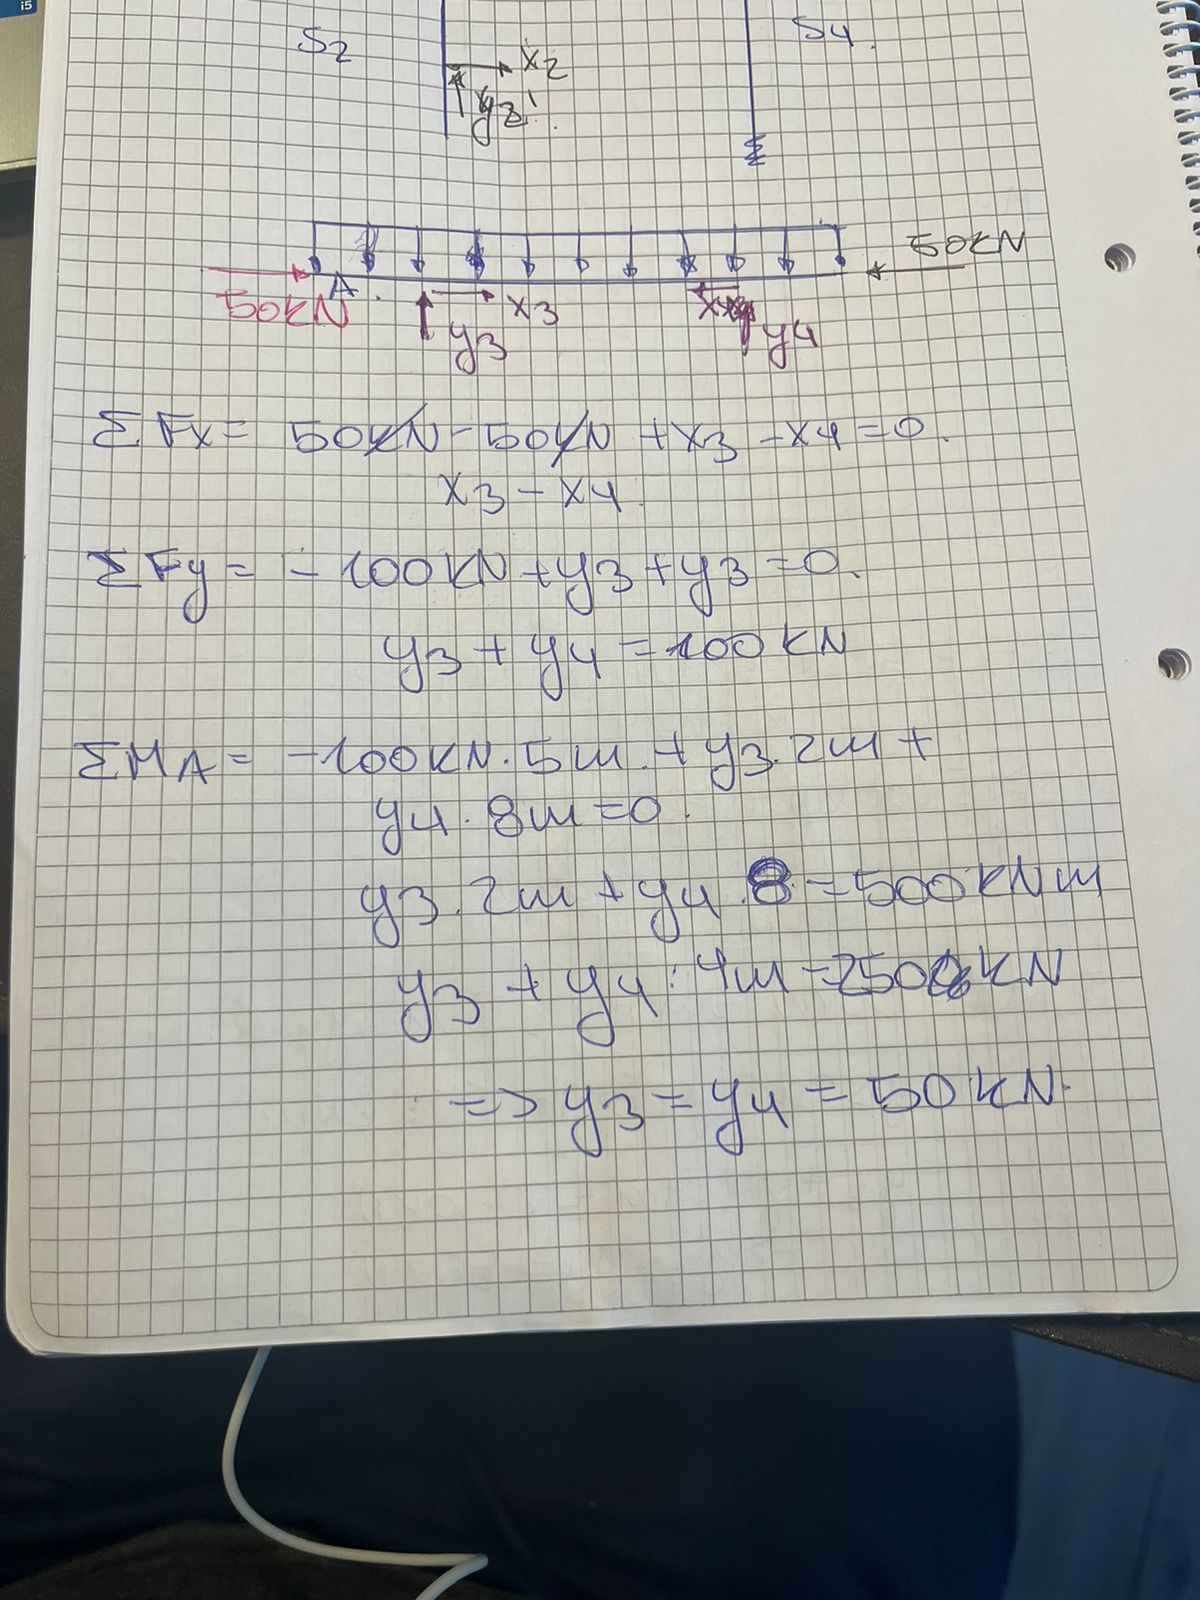 i5
S2
S4.
x2
y2'
50kN
A.
50kN
x3
x4
y3
y4
ΣFx= 50kN-50kN +x3 -x4=0.
x3 - x4
ΣFy= - 100kN+y3+y3=0.
y3 + y4 =100kN
ΣMA= -100kN.5m.+y3.2m+
y4. 8m=0.
y3.2m +y4.8=500kNm
y3 + y4.4m=250kN
=> y3=y4=50kN.